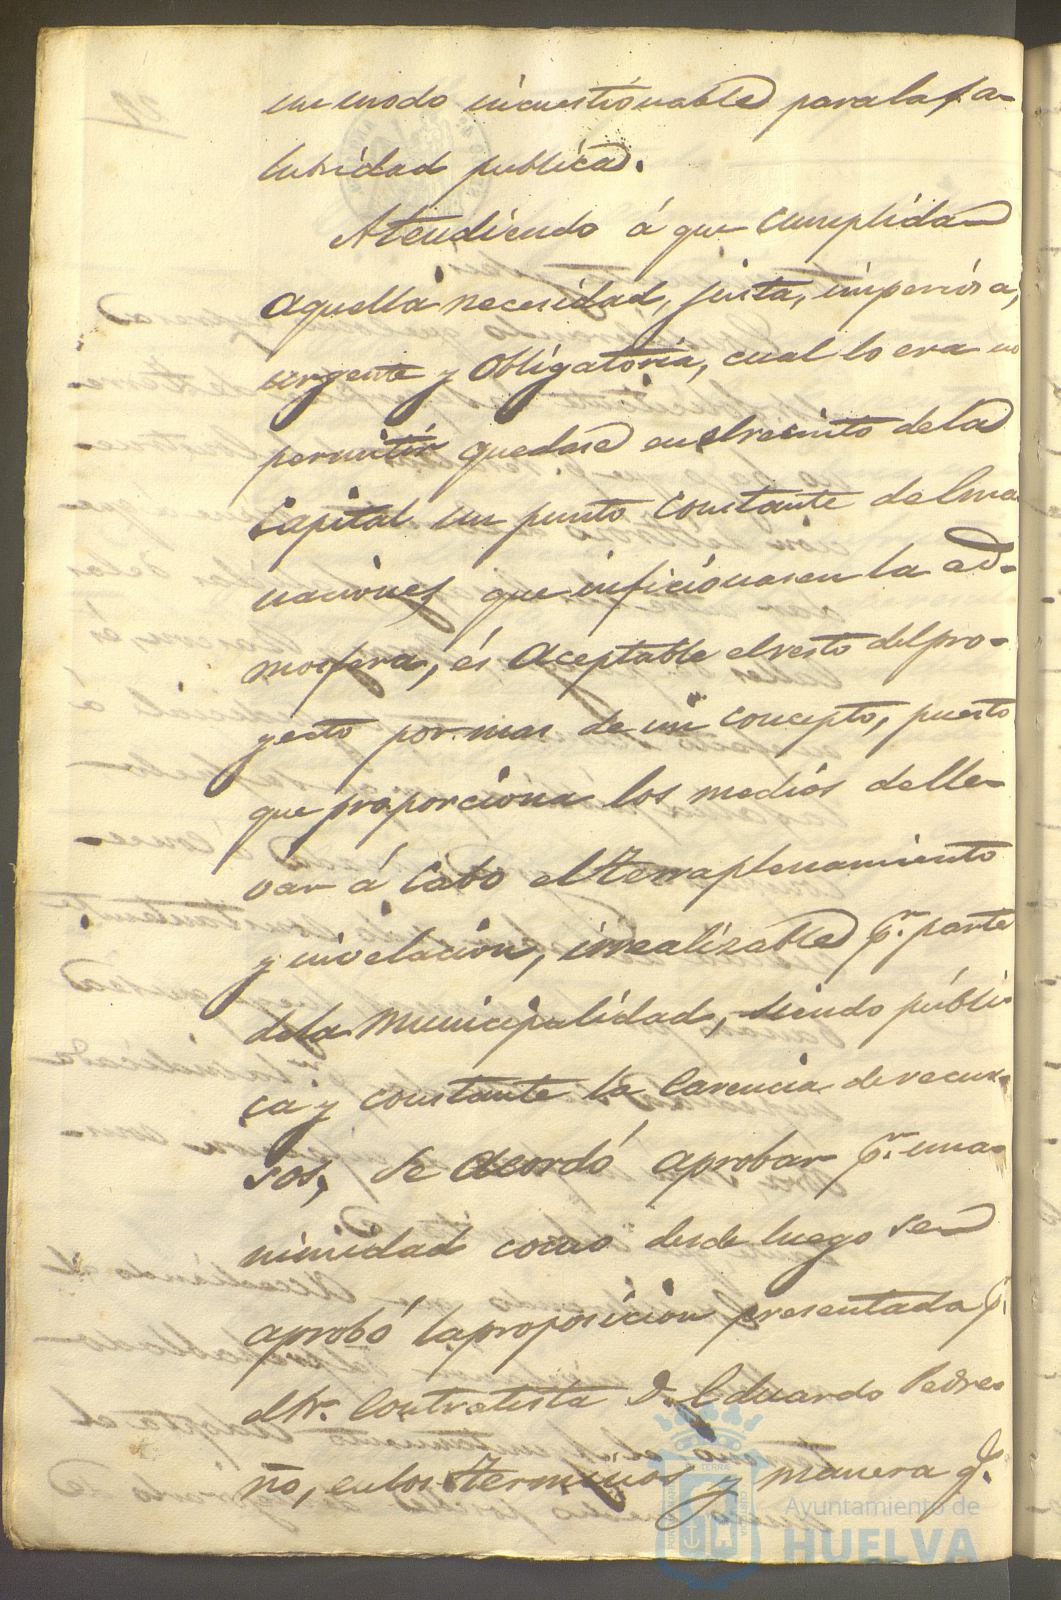 un modo incuestionable para la sa-
lubridad publica.
Atendiendo á que cumplida
aquella necesidad, justa, imperiosa,
urgente y obligatoria, cual lo era no
permitir quedase en el recinto de la
Capital un punto constante de Ema
naciones que inficionasen la ad-
mosfera, és aceptable el resto del pro-
yecto por mas de un concepto, puesto
que proporciona los medios de lle-
var á Cabo el terraplenamiento
y nivelacion, irrealizable pr. parte
de la Municipalidad, siendo públi
ca y constante la Carencia de recur-
sos, se acordó aprobar pr. una-
nimidad como desde luego se
aprobó la proposicion presentada pr.
el Sr. Contratista D. Eduardo Pedre
ño, en los terminos y manera q.
Ayuntamiento de
HUELVA